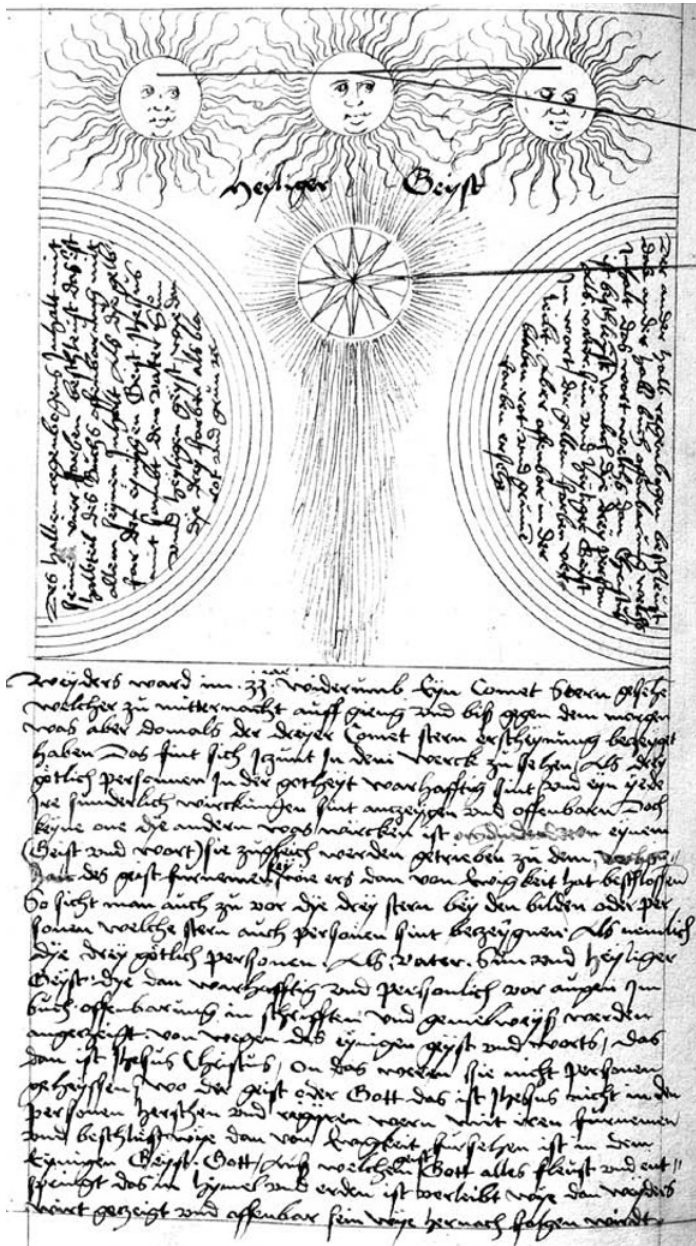 Heyliger Geyst
Des halben regenbogens Inhalt mit
seine vier farben beschleist das ist
halbteil des Buchs offenbarung mit
allem seinen Inhalt Als die gelb
fur den eynigen Geist Jhesus
mit sambt dem vater Son
und heyligen Geist wye dan
die drey farben als bla
rot und grun
Der ander halb regenbogen beschleist
das ander halb buch offenbarung welchs
Inhalt das wort welchs dan Christus
ist beschleist nemlich die drey person
als vatter sun und heyliger Geist
Im wort der gelben farben
nicht. Aber offenbar in der
blaben rot und grune
farben
Weyders ward im .33. iar widerumb Eyn Comet Stern gesehē
welcher zu mitternacht auff gieng vnd biß gegen dem morgen
was aber domals der dreyer Comet stern erscheynung bezeyget
haben Das sint sich Jczunt In dem werck zu sehen Als drey
götlich personnen In der gotheyt warhafftig sint vnd eyn yede
Jre sunderlich würckungen sint anzeygen vnd offenbarn Doch
keyne one dye andern was würcken ist eynem
(Geist vnd wort) sie zugleich werden getrieben zu dem
des geist furnemen wie ers dan von Ewigkeit hat beschlossen
So sicht man auch zu vor dye drey stern bey den bilden oder per
sonen welche stern auch personen sint bezeygnen. Als nemlich
dye drey götlich personen. Als. Vater. Sun vnd heyliger
Geyst. dye dan warhafftig vnd personlich vor augen Im
buch offenbarung in schrifften vnd gemelweyß werden
angezeigt von wegen des eynigen geyst vnd worts / das
dan ist Jhesus Christus / on das weren sie nicht personen
geheyssen / wo der geist oder Gott das ist Jhesus nicht in den
personen herschen vnd regyren wern mit iren furnemen
vnd beschließ wye dan von Ewigkeit fursehen ist in dem
Eynigen Geyst. Gott / Auß welchem geist Gott alles fleust vnd ent=
springt das in hymel vnd erden ist verleibt wye dan weyders
wirt gezeigt vnd offenbar sein wye hernach folgen wirdt.